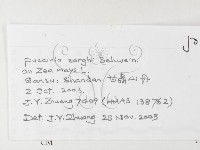 Puccinia sorghi Schwein.
on Zea mays L.
Gansu: Shandan 甘肃山丹
2 Oct. 2003.
J.Y. Zhuang 7409 (HMAS 138762)
Det. J.Y. Zhuang 28 Nov. 2005